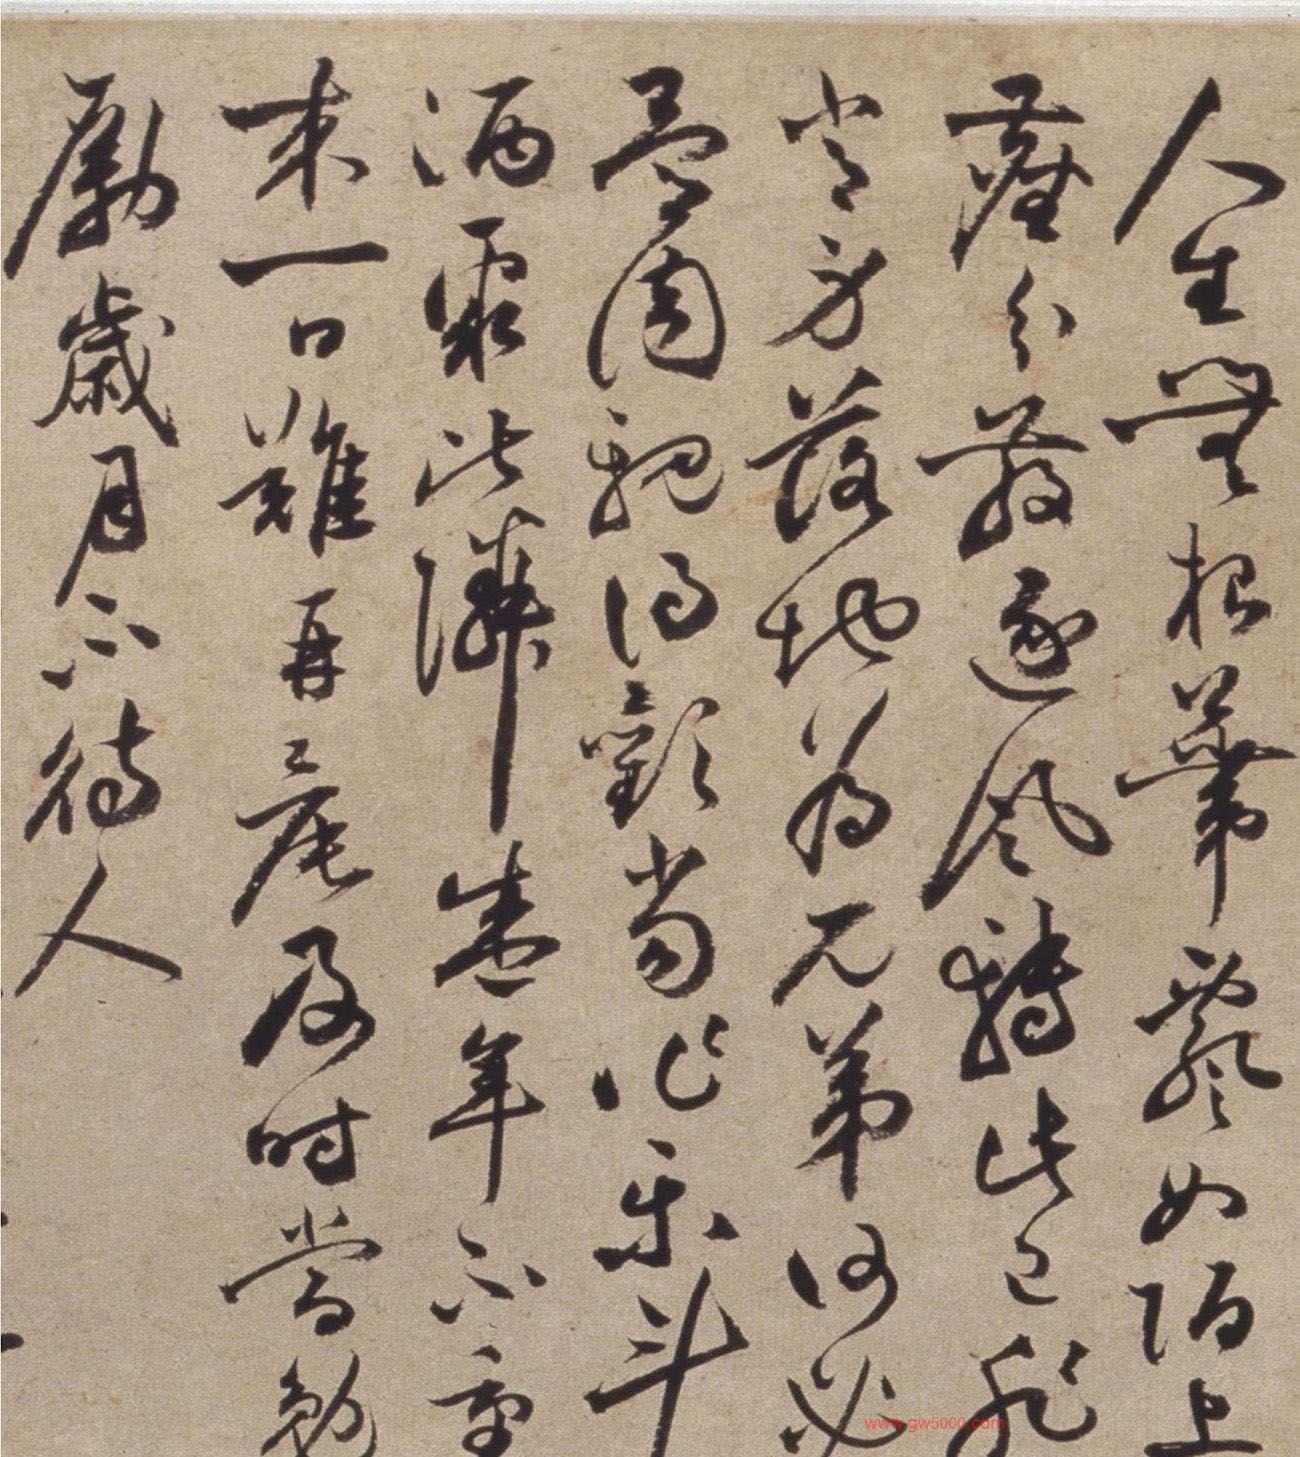 人生無根蒂飄如陌上
塵分散逐風轉此已非
常身落地為兄弟何必
骨肉親得歡當作樂斗
酒聚比鄰盛年不重
来一日難再晨及時當勉
勵歲月不待人
www.gw5000.com